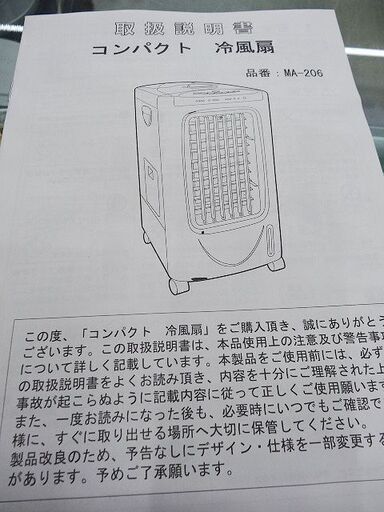 取扱説明書
コンパクト 冷風扇
品番：MA-206
この度、「コンパクト 冷風扇」をご購入頂き、誠にありがとう
ございます。この取扱説明書は、本品使用上の注意及び警告事項
について詳しく記載しています。本製品をご使用前には、必ず
の取扱説明書をよくお読み頂き、内容を十分にご理解された上
事故が起こらぬように記載内容に従って正しくご使用願います
また、一度お読みになった後も、必要時にいつでもご確認で
様に、すぐに取り出せる場所へ大切に保管してください。
製品改良のため、予告なしにデザイン・仕様を一部変更する
があります。予めご了承願います。